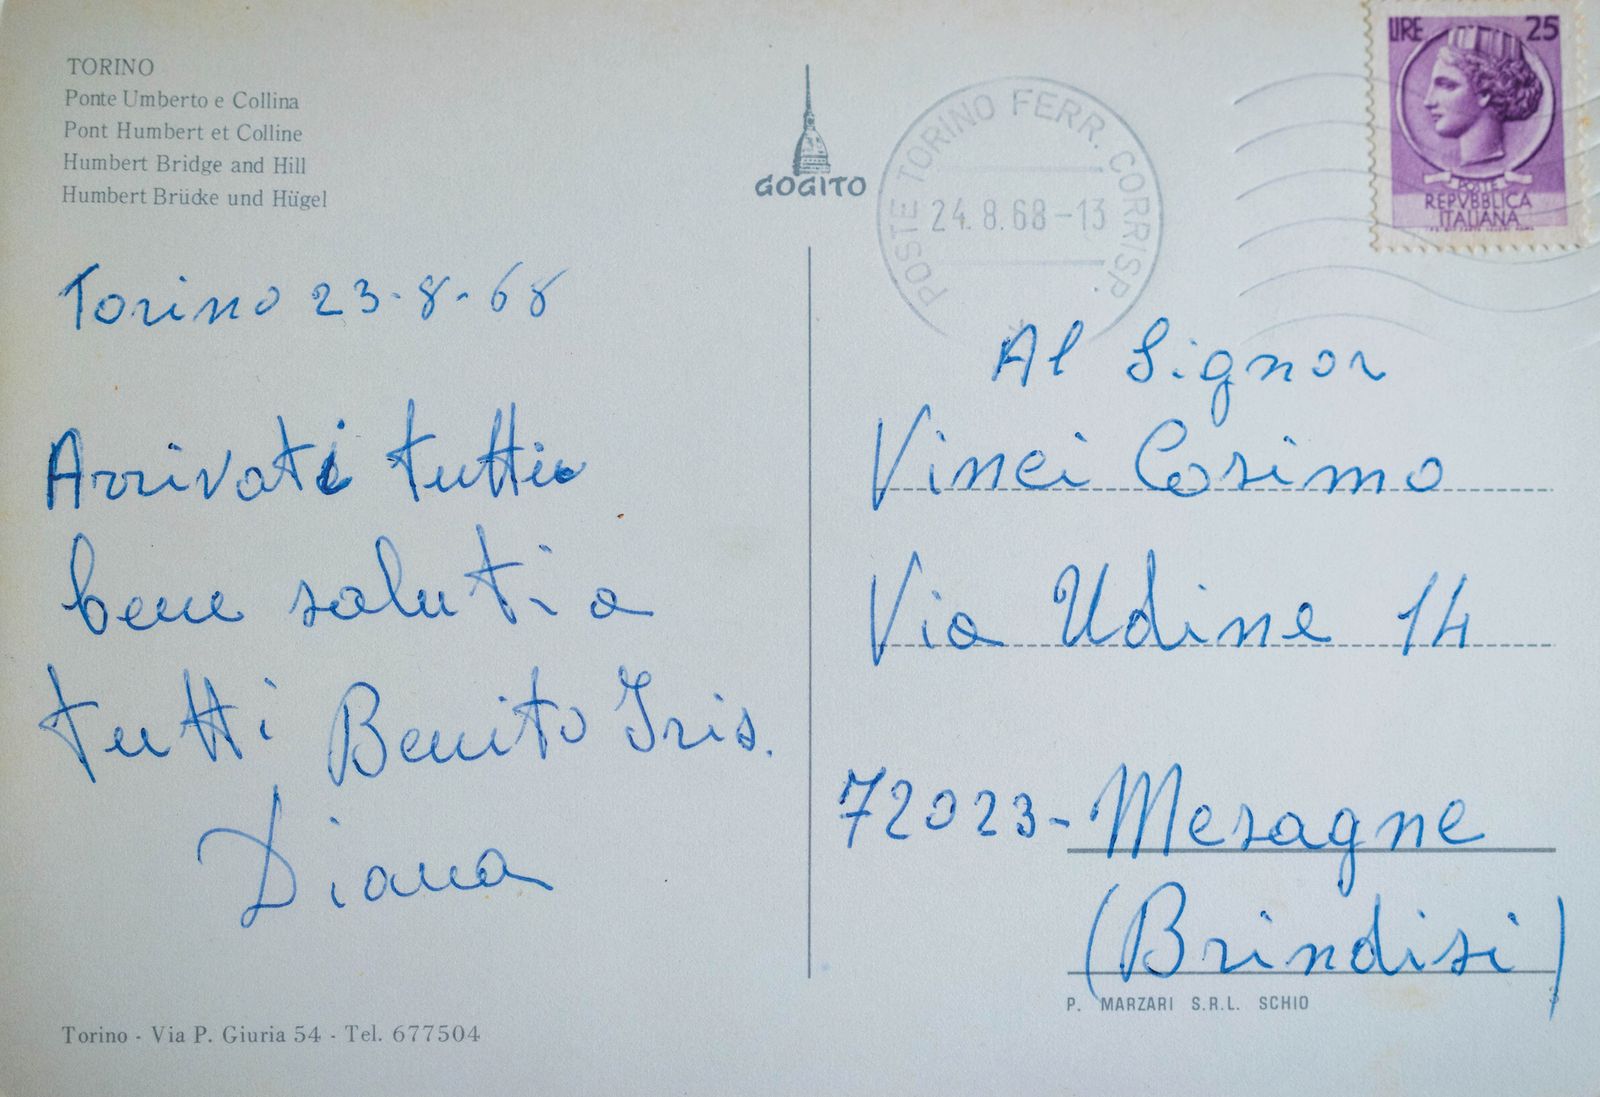 TORINO
Ponte Umberto e Collina
Pont Humbert et Colline
Humbert Bridge and Hill
Humbert Brücke und Hügel
Torino 23-8-68
Arrivati tutti
bene saluti a
tutti Benito Iris.
Diana
Torino - Via P. Giuria 54 - Tel. 677504
GOGITO
POSTE TORINO FERR. CORRISP.
24.8.68-13
LIRE 25
POSTE
REPVBBLICA
ITALIANA
Al Signor
Vinci Cosimo
Via Udine 14
72023- Mesagne
(Brindisi)
P. MARZARI S.R.L. SCHIO